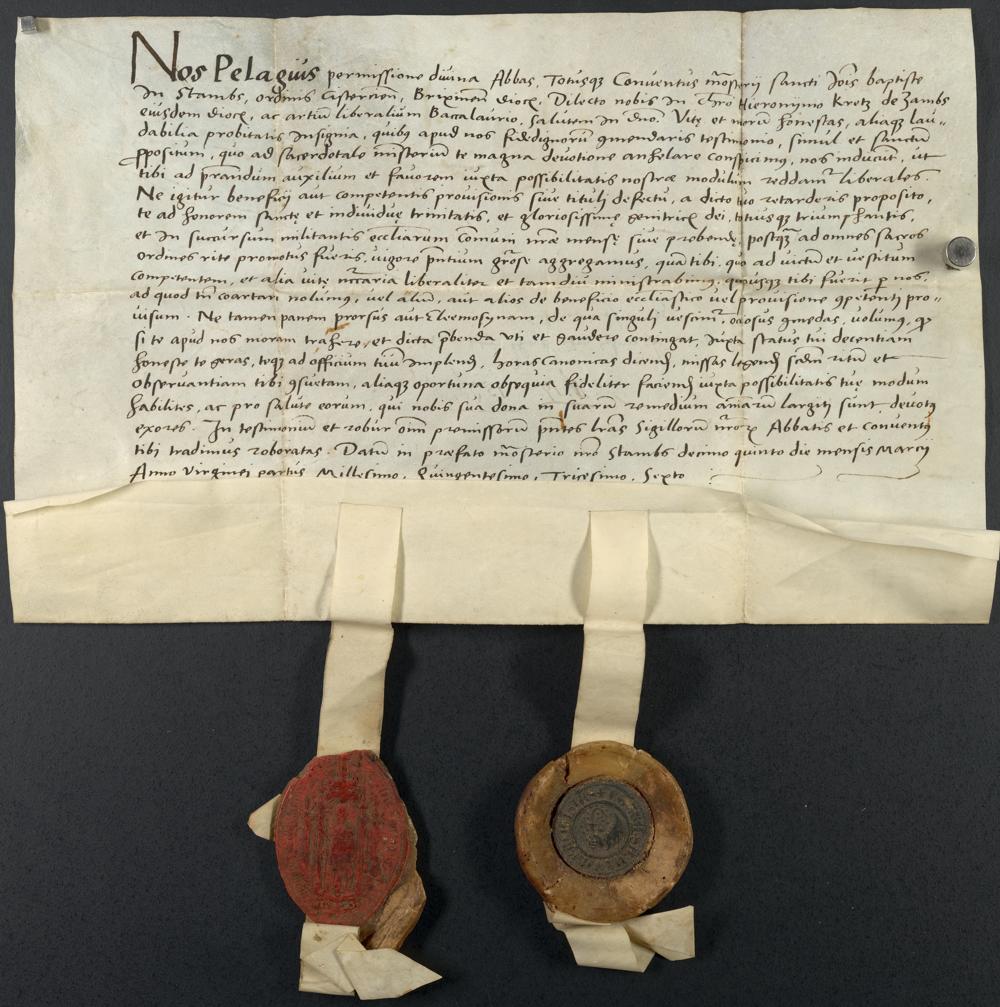 Nos Pelagius permissione divina Abbas, Totusqꝫ Conventus mosterij sancti Jois baptiste
In Stambs, ordinis Cistercien̄, Brixinen̄ dioc̄, Dilecto nobis In Chro Hieronymo Kretz de Zambs
eiusdem dioc̄, ac artiū liberalium Baccalaurio, Salutem in dno. Vitę et morū honestas, aliaqꝫ lau-
dabilia probitatis Insignia, quibꝰ apud nos fidedignorū ꝯmendaris testimonio, simul et sanctū
ꝓpositum, quo ad sacerdotale misteriū te magna devotione anhelare conspicimꝰ, nos inducūt, ut
tibi ad auxilium et favorem iuxta possibilitatis nostræ modulum reddamꝰ liberales.
Ne igitur beneficij aut competentis provisionis sive tituli defectu, a dicto tuo retarderis proposito,
te ad honorem sanctę et individuę trinitatis, et gloriosissimę genitricis dei, totiusqꝫ triumphantis,
et In succursum militantis eccliarum Comuni nræ mensę sive prebendę, postqꝫ ad omnes sacros
ordines rite promotus fueris, vigore pntium aggregamus, quā tibi, quo ad victū et vestitum
competentem, et alia vitę nccaria liberaliter et tamdiu ministrabimꝰ, quousqꝫ tibi fuerit ꝑ nos,
ad quod tn̄ coartari nolumꝰ, vel aliū, aut alios de beneficio eccliastico vel provisione ꝯpetentj pro-
visum. Nę tamen panem prorsus aut Eleemosynam, de qua singulj vescimꝰ, ociosus ꝯmedas, volumꝰ, qꝫ
si te apud nos moram trahere, et dicta pbenda uti et gaudere contingat, Juxta status tui decentiam
honeste te geras, teqꝫ ad officium tuū Implend̄, horas canonicas dicend̄, missas legend̄ scdm ritū et
observantiam tibi ꝯsuetam, aliaqꝫ oportuna obsequia fideliter faciend̄ iuxta possibilitatis tuę modum
habilites, ac pro salute eorum, qui nobis sua dona in suarū remedium aīarū largitj sunt, devotꝰ
exores. In testimoniū et robur oīm premissorū pntes lras Sigillorū nrorꝫ Abbatis et conventꝰ
tibi tradimus roboratas. Datū in præfato mosterio nro Stambs decimo quinto die mensis Marcij
Anno Virginei partus Millesimo, Quingentesimo, Tricesimo, Sexto